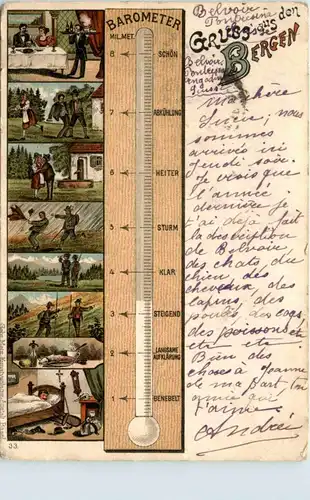 BAROMETER
MILMET.
8 SCHÖN
7 ABKÜHLUNG
6 HEITER
5 STURM
4 KLAR
3 STEIGEND
2 LANGSAME
AUFKLÄRUNG
1 BENEBELT
33.
Belvoir
GRUSS aus den
BERGEN
Belvoir
Ma chère
Lucie, nous
sommes
arrivés ici
Jeudi soir.
Je crois que
l'année
dernière je
t'ai déjà fait
la description
de Belvoir,
des chats, du
chien, des
chevaux, des
lapins, des
poules, des coqs,
des poissons et
etc etc.
Bien des
choses à Jeanne
de ma part ton
amie qui
t'aime
Andrée